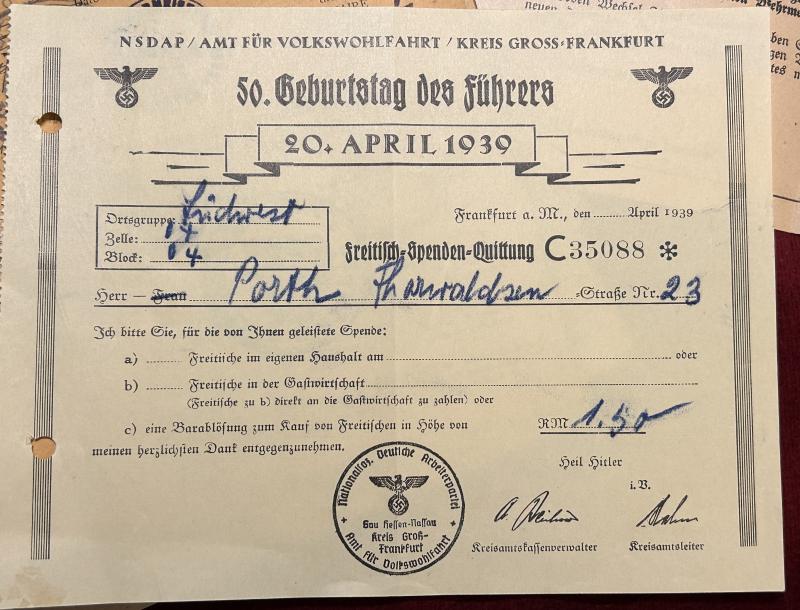 NSDAP / AMT FÜR VOLKSWOHLFAHRT / KREIS GROSS-FRANKFURT
50. Geburtstag des Führers
20. APRIL 1939
Ortsgruppe: Südwest
Zelle: 04
Block: 04
Frankfurt a. M., den ......... April 1939
Freitisch-Spenden-Quittung C35088 *
Herr — Frau Porth Thorwaldsen -Straße Nr. 23
Ich bitte Sie, für die von Ihnen geleistete Spende:
a) ......... Freitische im eigenen Haushalt am ......... oder
b) ......... Freitische in der Gastwirtschaft .........
(Freitische zu b) direkt an die Gastwirtschaft zu zahlen) oder
c) eine Barablösung zum Kauf von Freitischen in Höhe von RM 1.50
meinen herzlichsten Dank entgegenzunehmen.
Heil Hitler
i. V.
Kreisamtskassenverwalter Kreisamtsleiter
Nationalsoz. Deutsche Arbeiterpartei
Gau Hessen-Nassau
Kreis Groß-
Frankfurt
Amt für Volkswohlfahrt